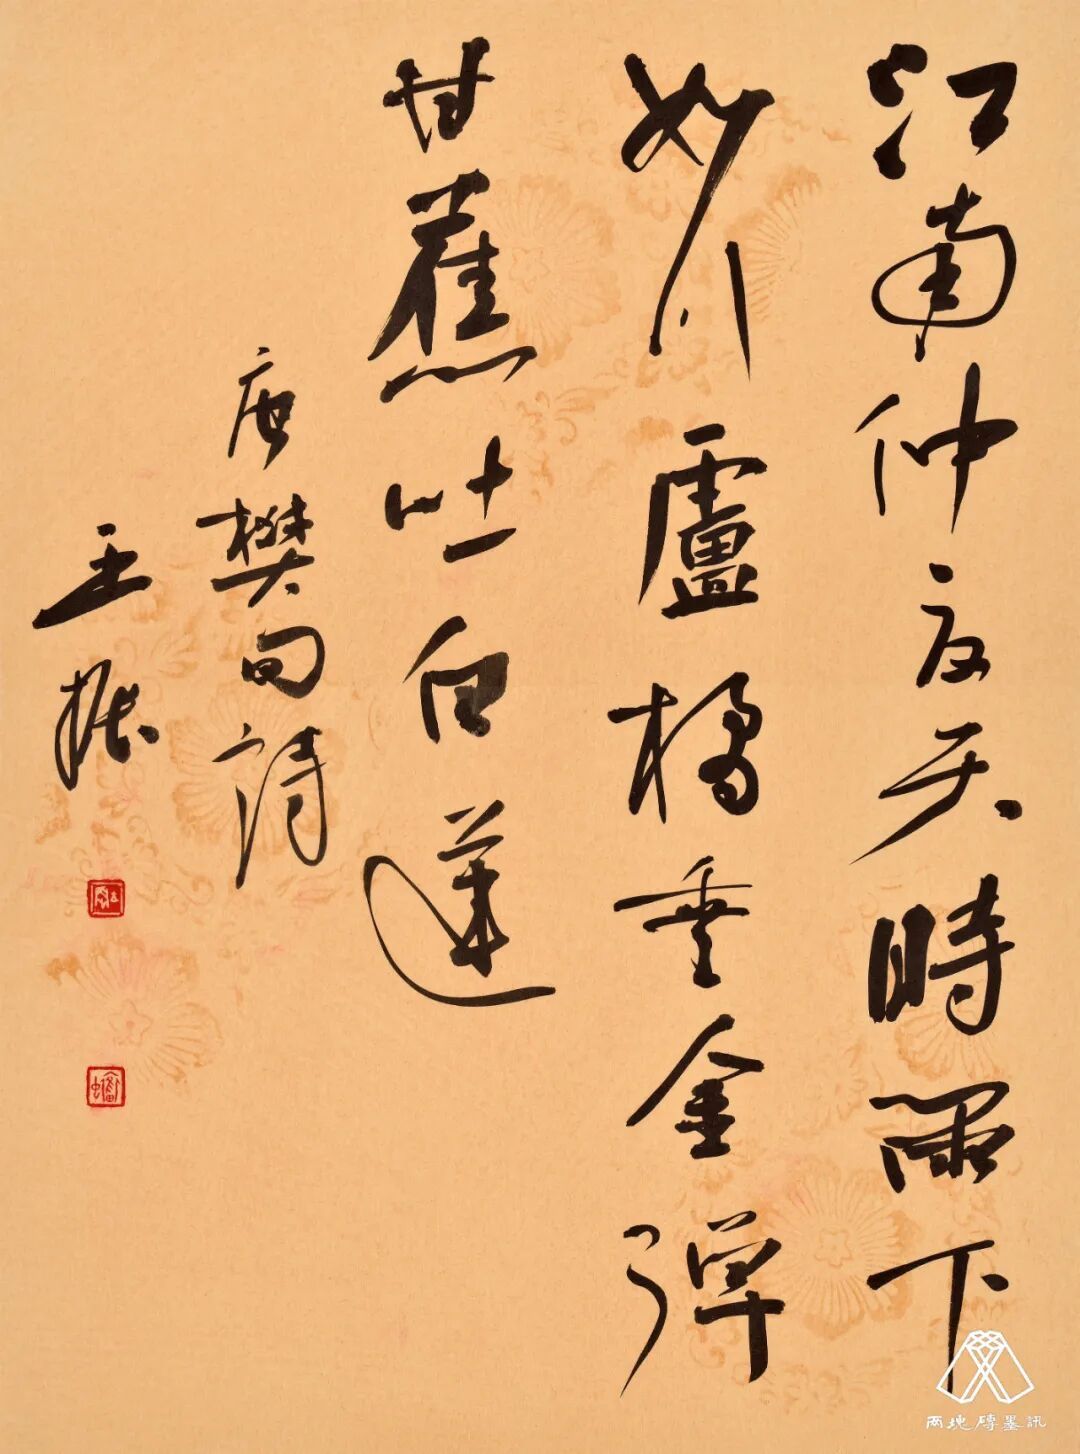 江南仲夏天時雨下
如川盧橘垂金彈
甘蕉吐白蓮
唐樊旬詩
王振
兩塊磚墨訊